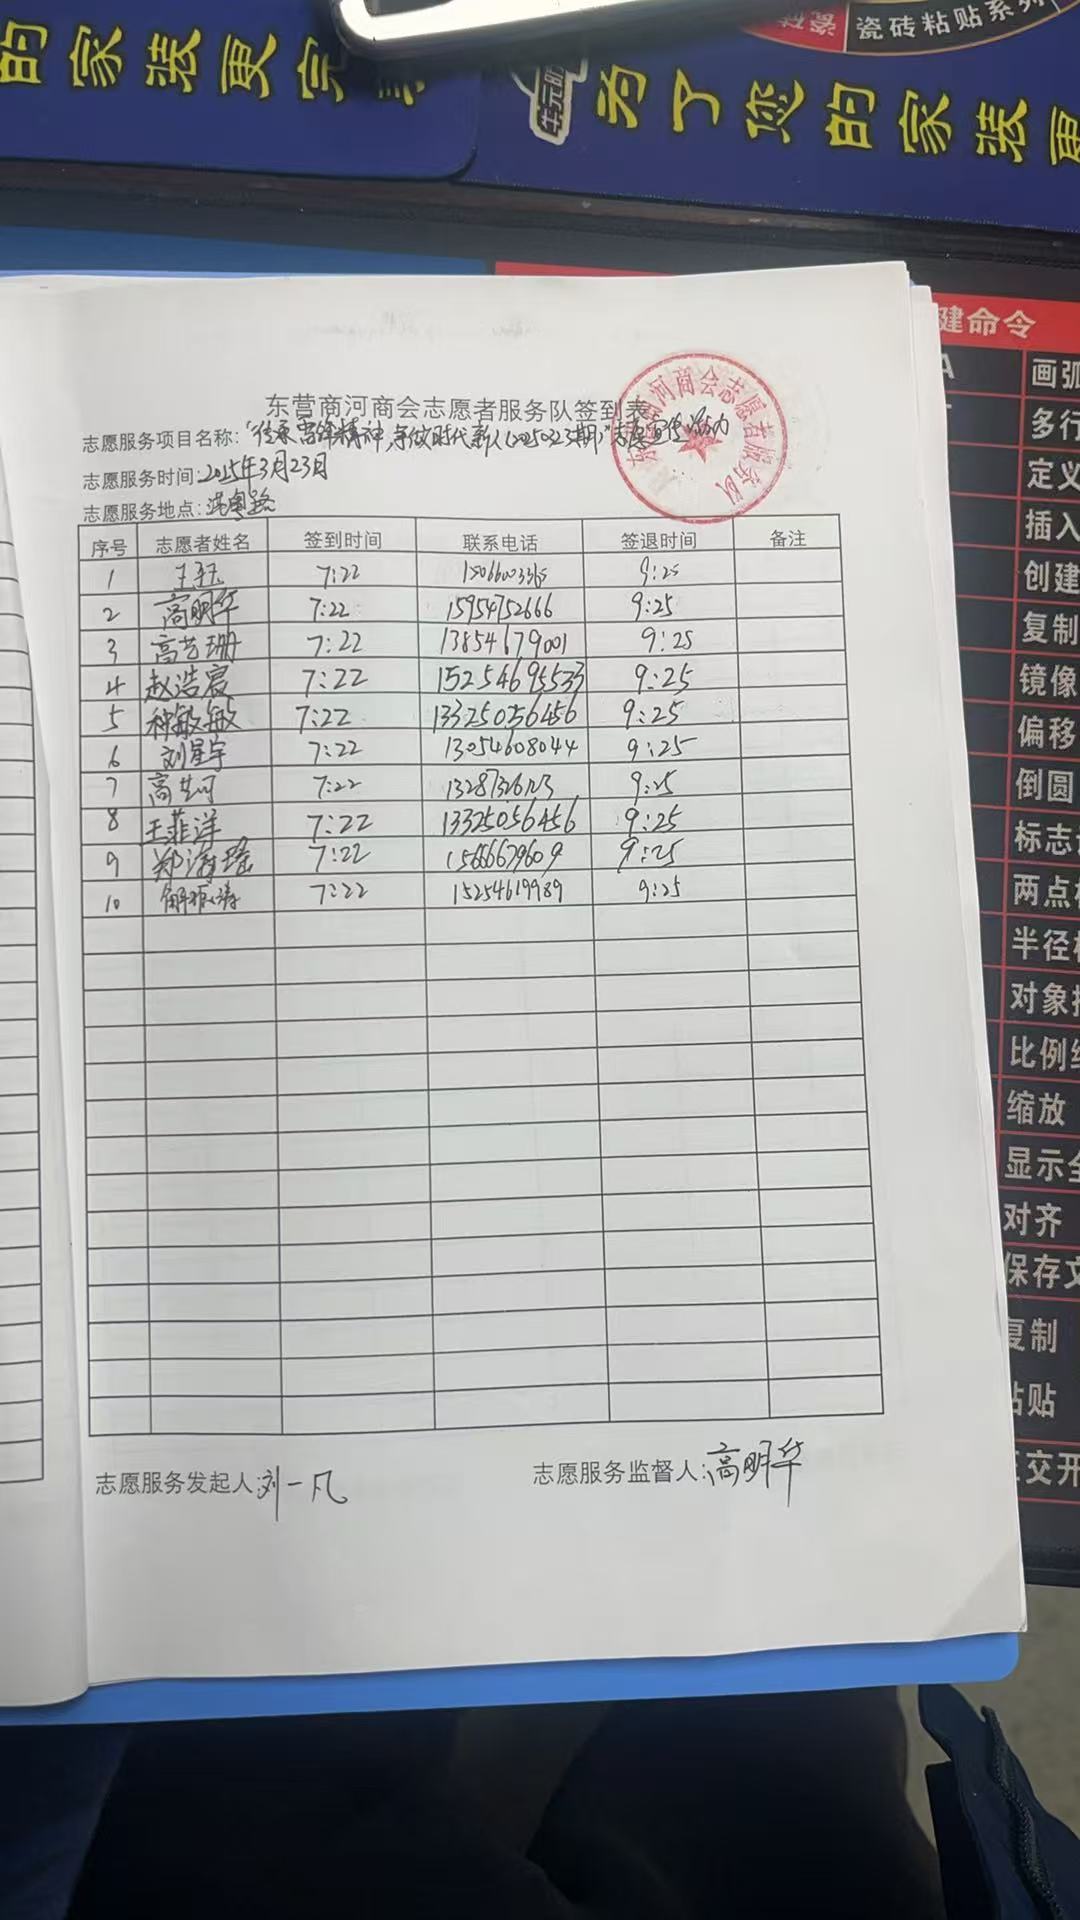 的家装更完美
为了您的家装更
瓷砖粘贴系列
建命令
画弧
多行
定义
插入
创建
复制
镜像
偏移
倒圆
标志
两点
半径
对象
比例
缩放
显示全
对齐
保存文
复制
粘贴
交开
东营商河商会志愿者服务队签到表
志愿服务项目名称:"传承雷锋精神,争做时代新人(20250323期)"志愿宣传活动
志愿服务时间:2025年3月23日
志愿服务地点:
序号 志愿者姓名 签到时间 联系电话 签退时间 备注
1 王钰 7:22 9:25
2 高明华 7:22 15954752666 9:25
3 高艺珊 7:22 13854679001 9:25
4 赵浩宸 7:22 15254695533 9:25
5 种敏敏 7:22 13325056456 9:25
6 刘星宇 7:22 13054608044 9:25
7 7:22 9:25
8 王菲洋 7:22 13325056456 9:25
9 7:22 15666679609 9:25
10 解振涛 7:22 15254619989 9:25
志愿服务发起人:刘一凡
志愿服务监督人:高明华